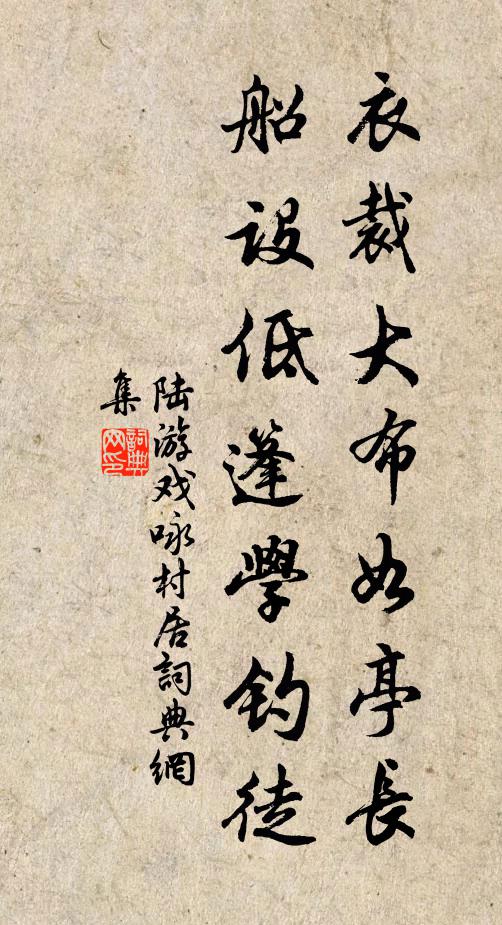 衣裁大布如亭長
船設低篷學钓徒
陆游戏咏村居詞典網
集
詞典网印